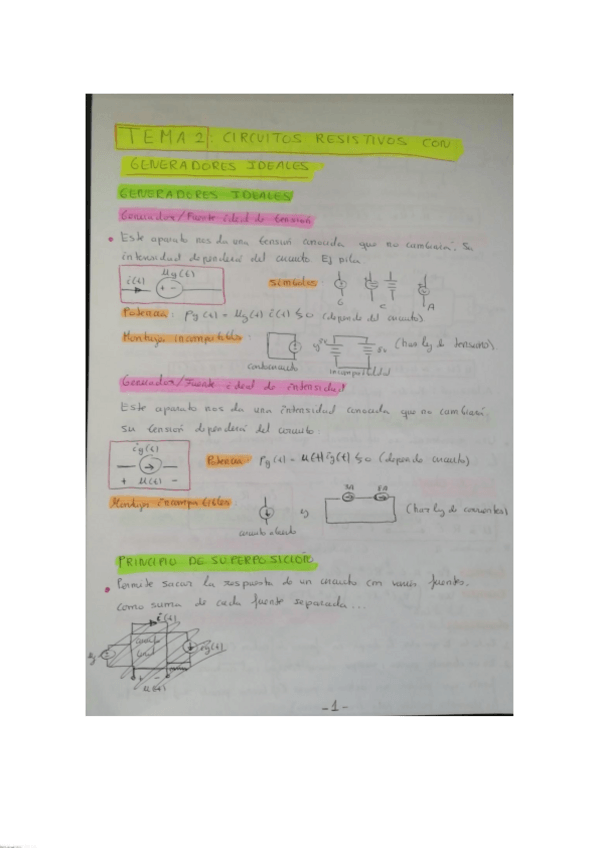 TEMA 2: CIRCUITOS RESISTIVOS CON
GENERADORES IDEALES
GENERADORES IDEALES
Generador/Fuente ideal de tensión
Este aparato nos da una tensión conocida que no cambiará. Su
intensidad dependerá del circuito. Ej pila.
i(t) ug(t) + - Símbolos
C C A
Potencia: pg(t) = ug(t) i(t) ≶ 0 (depende del circuito).
Montajes incompatibles: (hay ley de tensiones).
cortocircuito incompatibilidad
Generador/Fuente ideal de intensidad
Este aparato nos da una intensidad conocida que no cambiará,
su tensión dependerá del circuito.
ig(t)
+ u(t) - Potencia: pg(t) = u(t) ig(t) ≶ 0 (depende circuito)
Montajes incompatibles y (hay ley de corrientes)
circuito abierto
PRINCIPIO DE SUPERPOSICIÓN
Permite sacar la respuesta de un circuito con varias fuentes,
como suma de cada fuente separada...
i(t)
ig(t)
+ -
u(t)
-1-